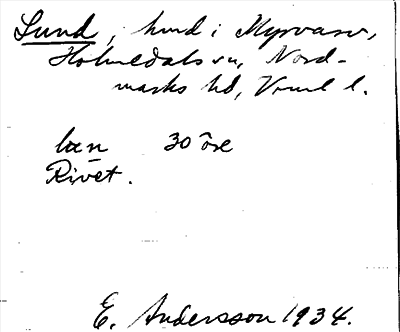 Lund, hund i Myrvarv,
Holmedals sn, Nord-
marks hd, Vrml l.
læn 30 öre
Rivet.
E. Andersson 1934.